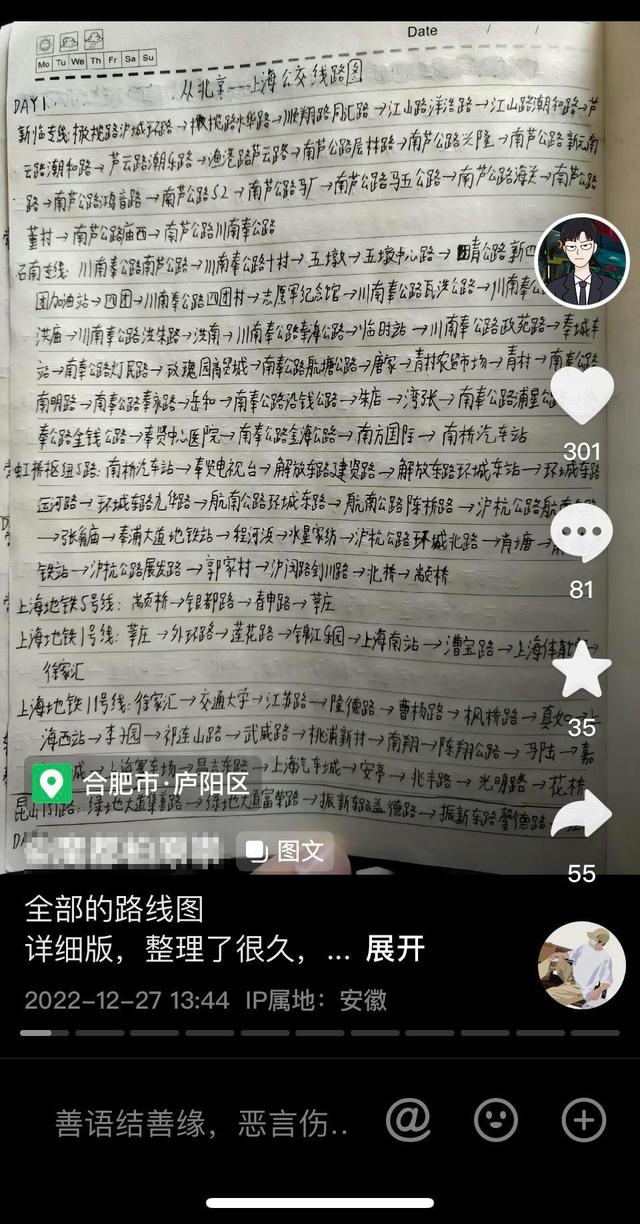 Date / /
Mo Tu We Th Fr Sa Su
从北京---上海公交线路图
DAY1......
新临专线:橄榄路沪城环路→橄榄路水华路→顺翔路月汇路→江山路洋浩路→江山路潮和路→芦
云路潮和路→芦云路潮乐路→渔港路芦云路→南芦公路层林路→南芦公路兴隆→南芦公路新元南
路→南芦公路鸿音路→南芦公路S2→南芦公路马厂→南芦公路马五公路→南芦公路海关→南芦公路
董村→南芦公路庙西→南芦公路川南奉公路
石南专线:川南奉公路南芦公路→川南奉公路十村→五墩→五墩中心路→四青公路新四
团加油站→四团→川南奉公路四团村→志愿军纪念馆→川南奉公路瓦洪公路→川南奉公
洪庙→川南奉公路洪朱路→洪南→川南奉公路奉海公路→临时站→川南奉公路政苑路→奉城车
站→南奉公路灯民路→玫瑰园商贸城→南奉公路航塘公路→唐家→青村农贸市场→青村→南奉公路
南明路→南奉公路奉永路→岳和→南奉公路沿钱公路→朱店→湾张→南奉公路浦星公路→
奉公路金钱公路→奉贤中心医院→南奉公路金海公路→南方国际→南桥汽车站
虹桥枢纽5路:南桥汽车站→奉贤电视台→解放东路建贤路→解放东路环城东站→环城东路
运河路→环城东路九华路→航南公路环城东路→航南公路陈桥路→沪杭公路航南
→张翁庙→奉浦大道地铁站→程河浜→水星家纺→沪杭公路环城北路→肖塘→
铁站→沪杭公路展发路→郭家村→沪闵路剑川路→北桥→颛桥
上海地铁5号线:颛桥→银都路→春申路→莘庄
上海地铁1号线:莘庄→外环路→莲花路→锦江乐园→上海南站→漕宝路→上海体育馆→
徐家汇
上海地铁11号线:徐家汇→交通大学→江苏路→隆德路→曹杨路→枫桥路→真如→上
海西站→李子园→祁连山路→武威路→桃浦新村→南翔→陈翔公路→马陆→嘉
城→上海赛车场→昌吉东路→上海汽车城→安亭→兆丰路→光明路→花桥
昆山151路:绿地大道集善路→绿地大道富荣路→振新东路盖德路→振新东路馨德路
301
81
35
55
合肥市·庐阳区
图文
全部的路线图
详细版，整理了很久，... 展开
2022-12-27 13:44 IP属地：安徽
善语结善缘，恶言伤..